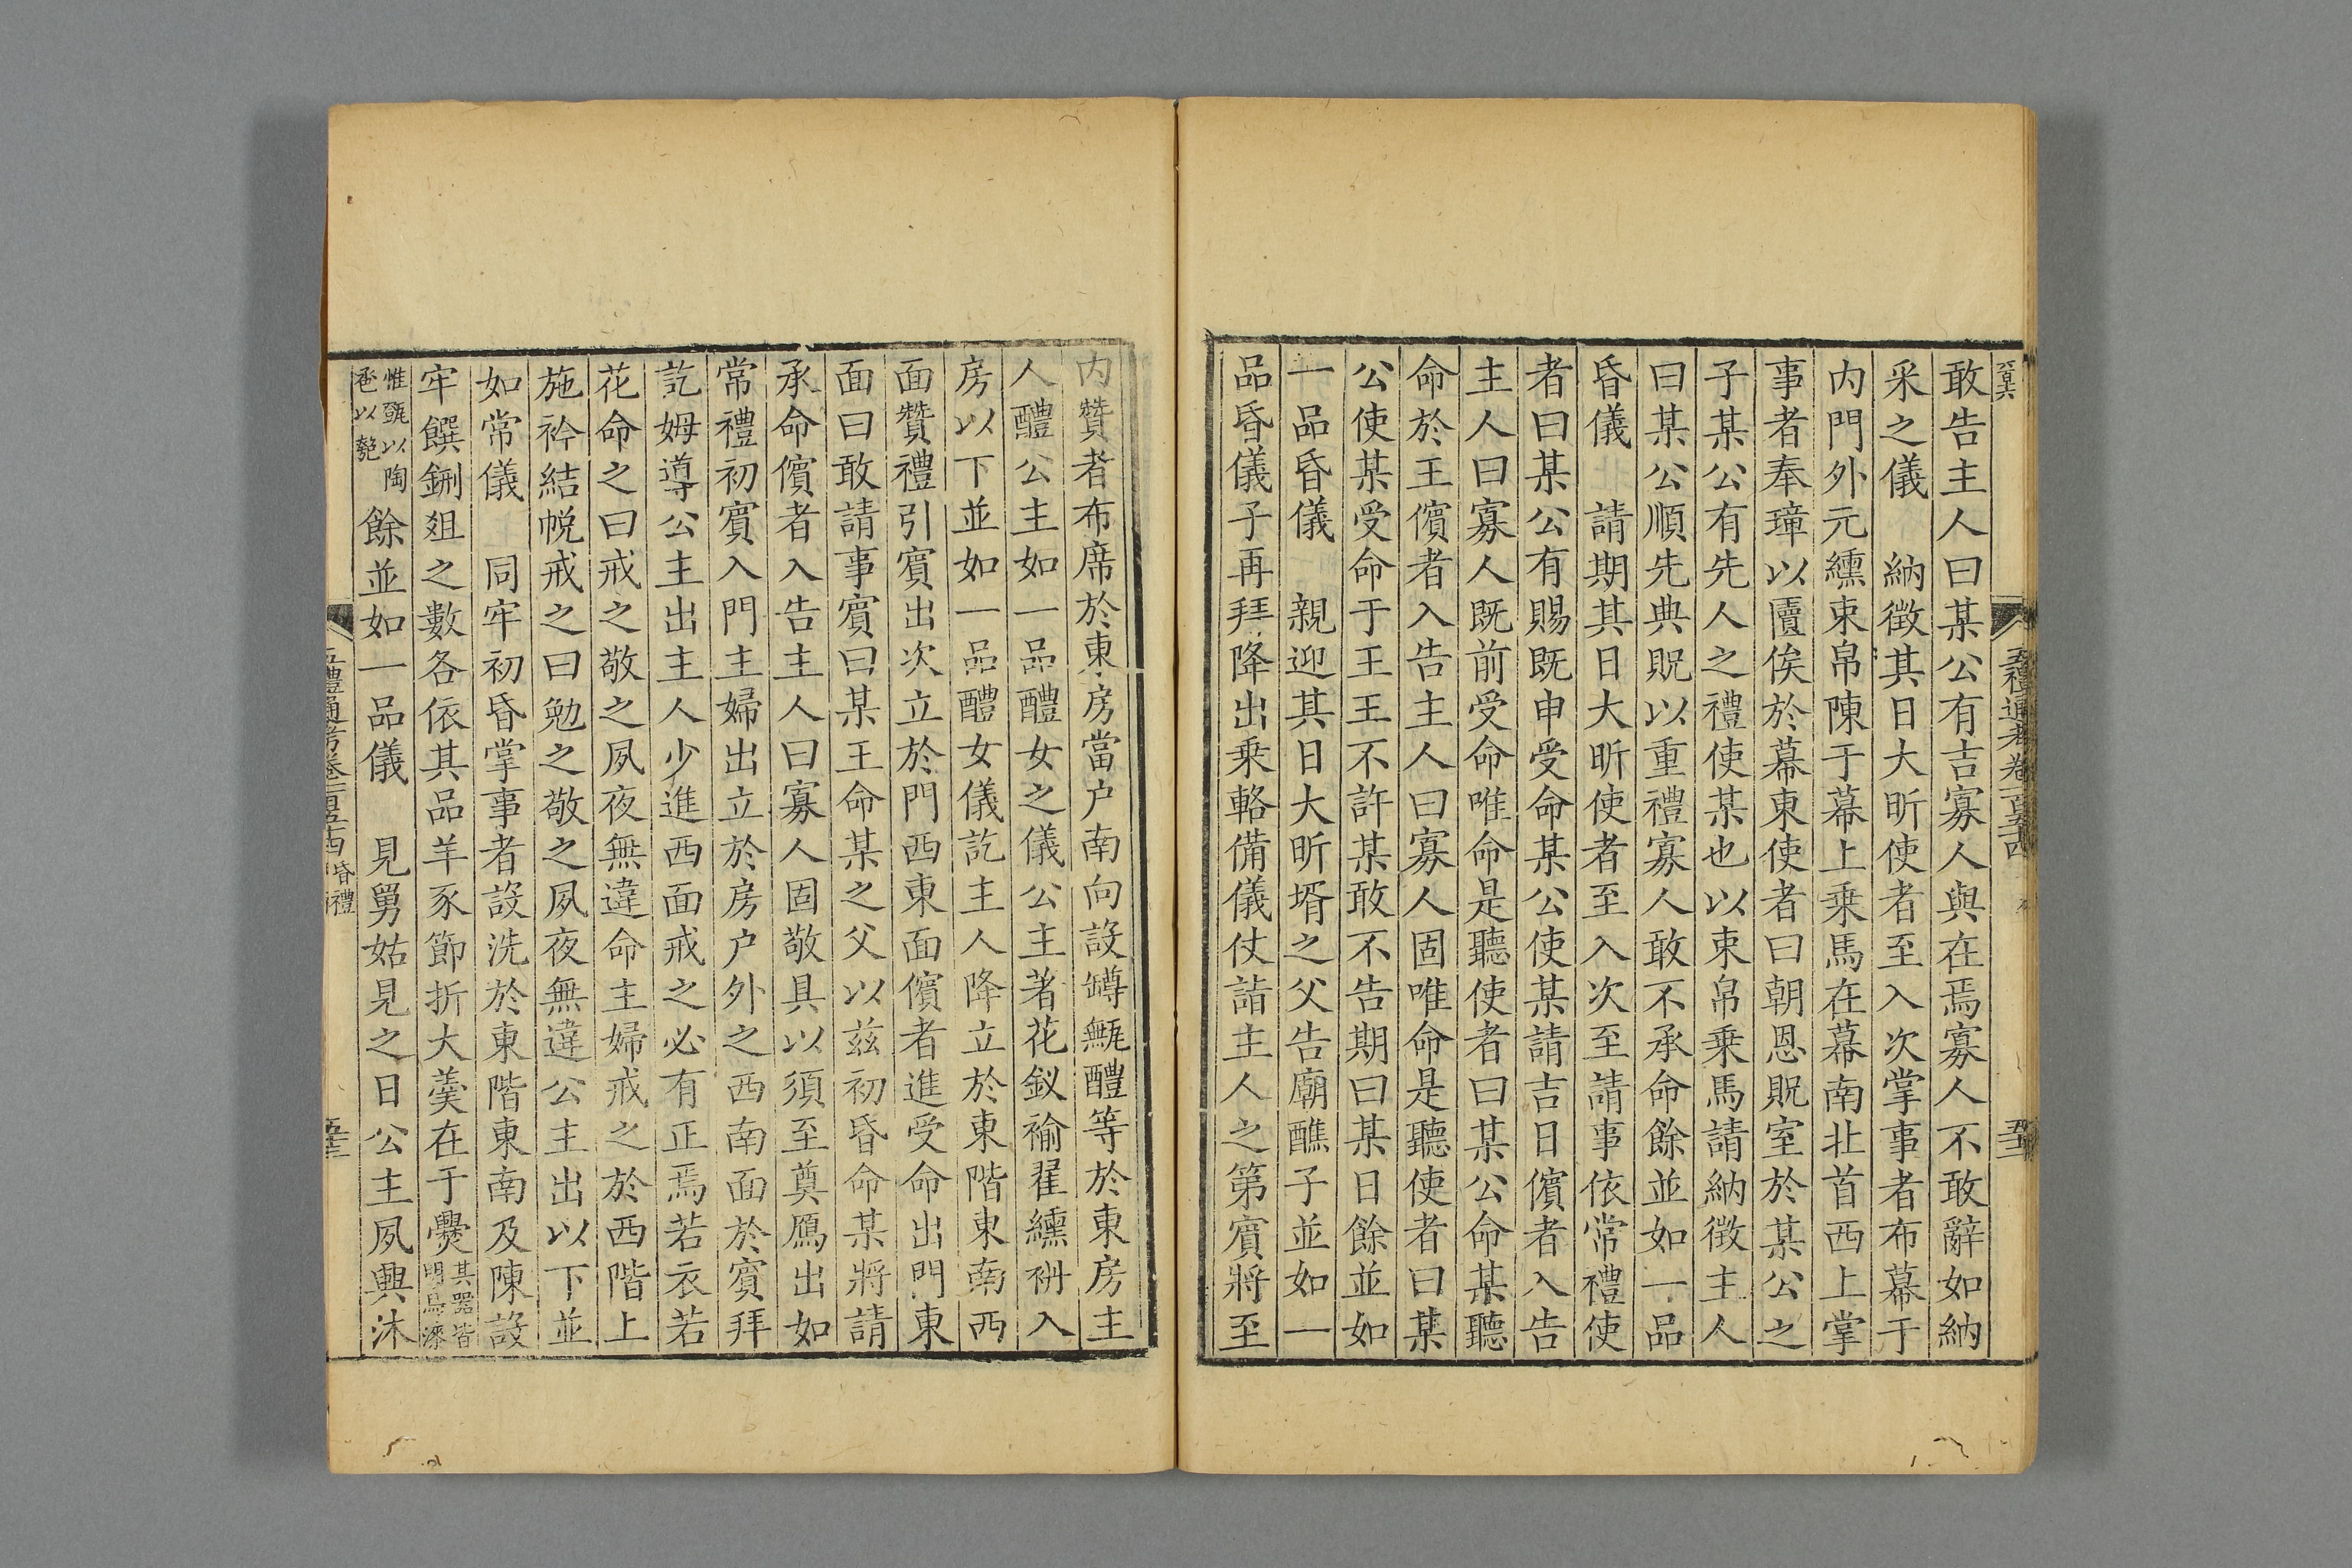 敢告主人曰某公有吉寡人與在焉寡人不敢辭如納
采之儀　納徵其日大昕使者至入次掌事者布幕于
内門外元纁束帛陳于幕上乗馬在幕南北首西上掌
事者奉璋以匵俟於幕東使者曰朝恩貺室於某公之
子某公有先人之禮使某也以束帛乗馬請納徵主人
曰某公順先典貺以重禮寡人敢不承命餘並如一品
昏儀　請期其日大昕使者至入次至請事依常禮使
者曰某公有賜既申受命某公使某請吉日儐者入告
主人曰寡人既前受命唯命是聽使者曰某公命某聽
命於王儐者入告主人曰寡人固唯命是聽使者曰某
公使某受命于王王不許某敢不告期曰某日餘並如
一品昏儀　親迎其日大昕壻之父告廟醮子並如一
品昏儀子再拜降出乗輅備儀仗詣主人之第賓將至
五禮通考卷一百五十四
内贊者布席於東房當户南向設罇甒醴等於東房主
人醴公主如一品醴女之儀公主著花釵褕翟纁袡入
房以下並如一品醴女儀訖主人降立於東階東南西
面贊禮引賓出次立於門西東面儐者進受命出門東
面曰敢請事賓曰某王命某之父以兹初昏命某將請
承命儐者入告主人曰寡人固敬具以須至奠鴈出如
常禮初賓入門主婦出立於房户外之西南面於賓拜
訖姆導公主出主人少進西面戒之必有正焉若衣若
花命之曰戒之敬之夙夜無違命主婦戒之於西階上
施衿結帨戒之曰勉之敬之夙夜無違公主出以下並
如常儀　同牢初昏掌事者設洗於東階東南及陳設
牢饌鉶俎之數各依其品羊豕節折大羹在于爨其器皆
明烏漆
惟甒以陶
巹以匏餘並如一品儀　見舅姑見之日公主夙興沐
五禮通考卷一百五十四　昏禮